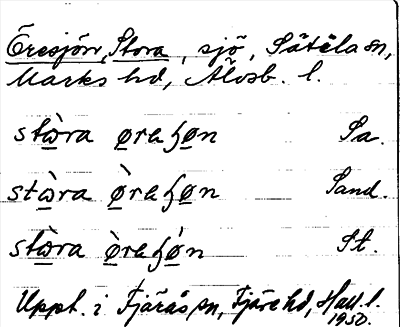 Öresjön, Stora, sjö, Sätila sn,
Marks hd, Älvsb. l.
stὼra ø̀reʃøn Sa.
stὼra ø̀reʃøn Sand.
stὼra ø̀reʃø̀n St.
Uppt. i Fjärås sn, Fjäre hd, Hall. l.
1950.